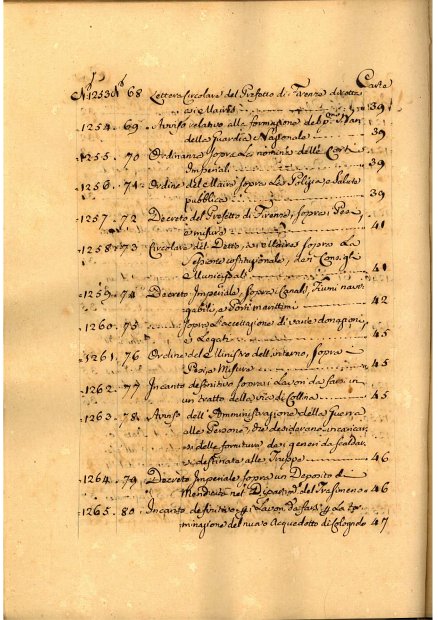 Carte
N.° 1253 N.° 68 Lettera Circolare del Prefetto di Firenze diretta
ai Maires 39
1254. 69. Avviso relativo alla formazione de
della Guardia Nazionale 39
1255. 70 Ordinanza sopra la nomina delle Corti
Imperiali 39
1256. 71 Ordine del Maire sopra la Polizia e Salute
pubblica 39
1257. 72 Decreto del Prefetto di Firenze, sopra Pesi
e misure 41
1258. 73 Circolare del Detto, ai Maires sopra la
dei Consigli
Municipali 41
1259. 74 Decreto Imperiale, sopra Canali, Fiumi navi
gabili, e Porti marittimi 42
1260. 75 sopra l'accettazione di varie donazioni
e Legati 45
1261. 76 Ordine del Ministro dell'interno, sopra
Pesi e Misure 45
1262. 77 Incanto definitivo sopra i Lavori da farsi in
un tratto della via di Collina 45
1263. 78 Avviso dell'Amministrazione della guerra
alle Persone, che desiderano incaricar
si delle forniture dei generi da scaldar
si destinate alle Truppe 46
1264. 79 Decreto Imperiale sopra un Deposito di
Mendicità nel Dipartim.° del Trasimeno 46
1265. 80 Incanto definitivo Lavori da farsi la ter
minazione del nuovo Acquedotto di Colognole 47